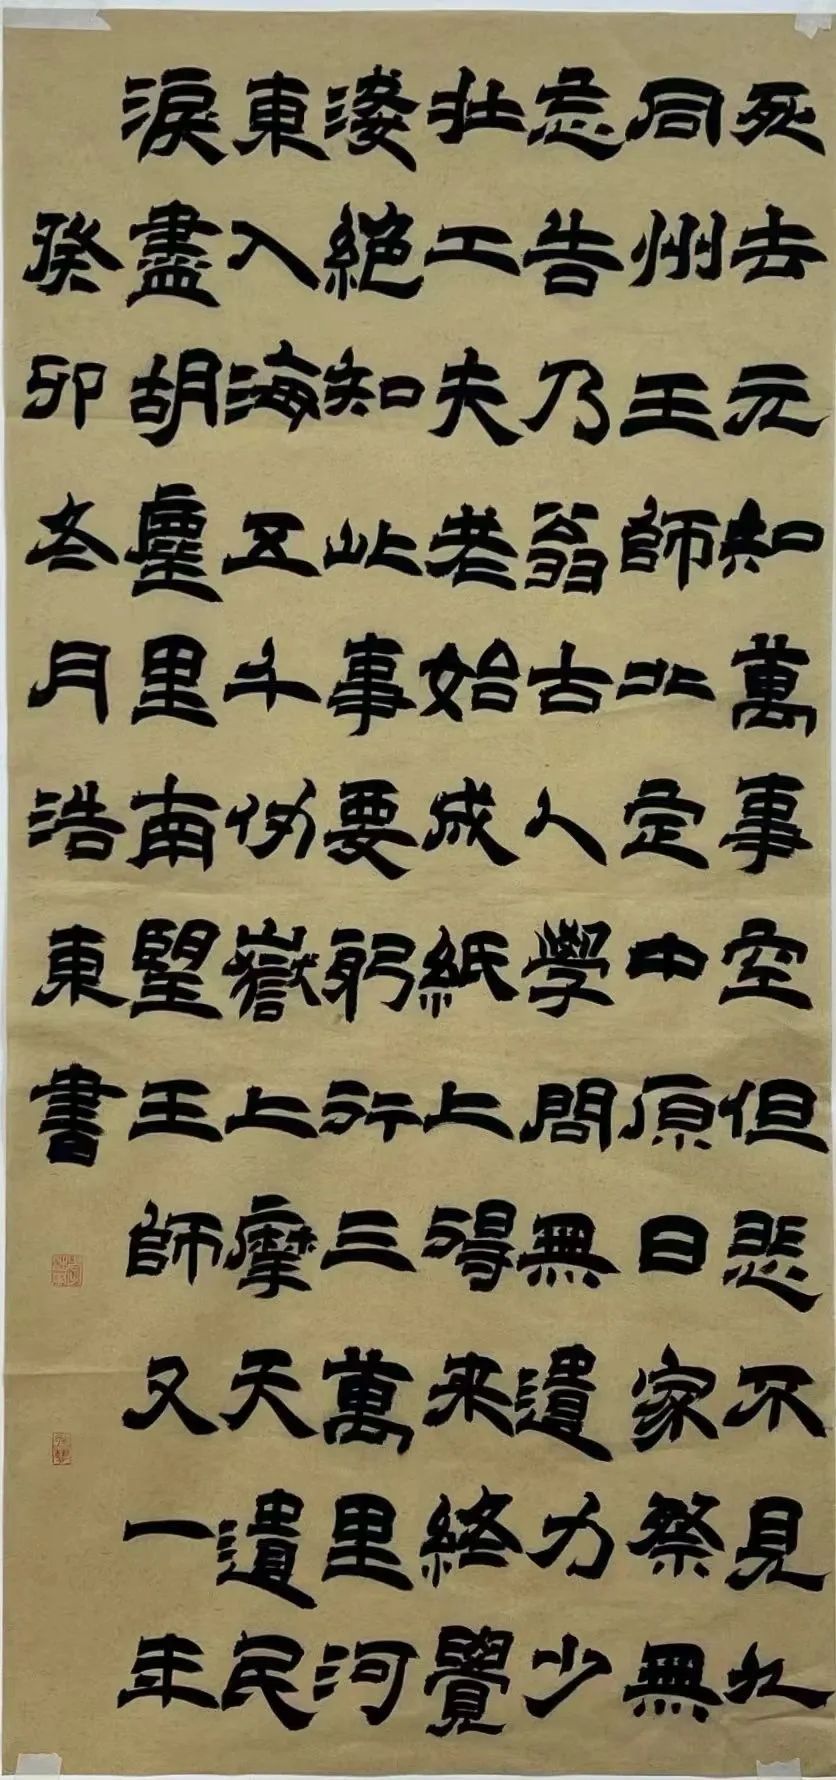 死去元知萬事空但悲不見九
同州王師北定中原日家祭無
忘告乃翁古人學問無遺力少
壯工夫老始成紙上得来終覺
淺絕知此事要躬行三萬里河
東入海五千仞嶽上摩天遺民
淚盡胡塵里南望王師又一年
癸卯冬月浩東書